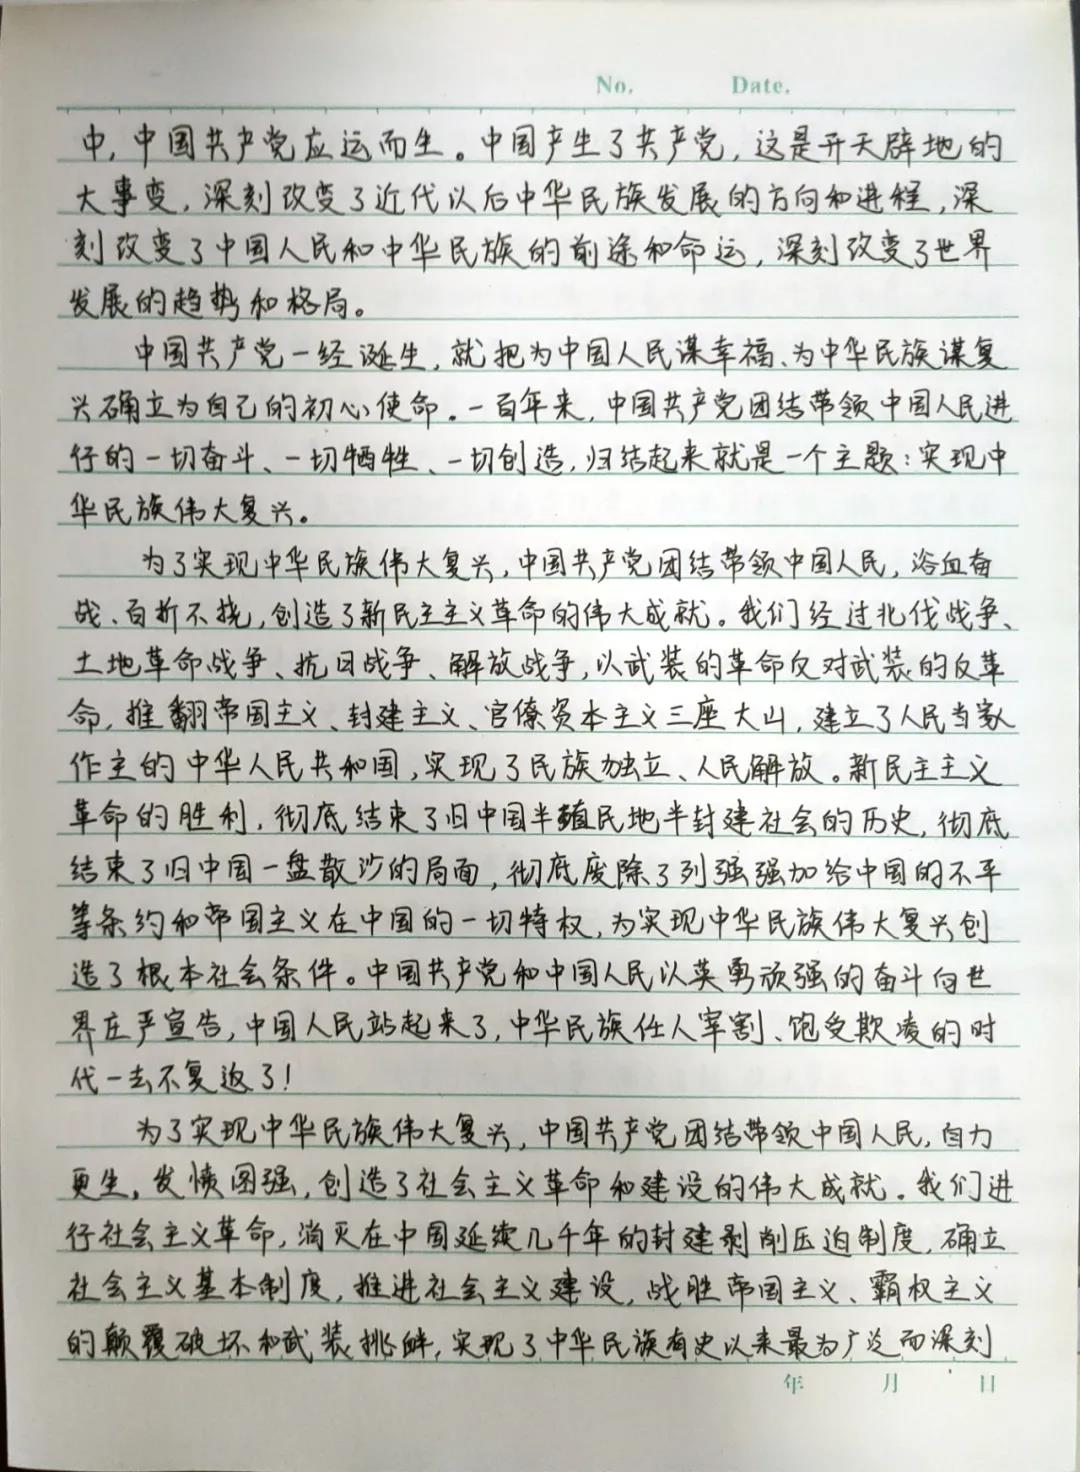 No.    Date.
中，中国共产党应运而生。中国产生了共产党，这是开天辟地的
大事变，深刻改变了近代以后中华民族发展的方向和进程，深
刻改变了中国人民和中华民族的前途和命运，深刻改变了世界
发展的趋势和格局。
中国共产党一经诞生，就把为中国人民谋幸福、为中华民族谋复
兴确立为自己的初心使命。一百年来，中国共产党团结带领中国人民进
行的一切奋斗、一切牺牲、一切创造，归结起来就是一个主题：实现中
华民族伟大复兴。
为了实现中华民族伟大复兴，中国共产党团结带领中国人民，浴血奋
战、百折不挠，创造了新民主主义革命的伟大成就。我们经过北伐战争、
土地革命战争、抗日战争、解放战争，以武装的革命反对武装的反革
命，推翻帝国主义、封建主义、官僚资本主义三座大山，建立了人民当家
作主的中华人民共和国，实现了民族独立、人民解放。新民主主义
革命的胜利，彻底结束了旧中国半殖民地半封建社会的历史，彻底
结束了旧中国一盘散沙的局面，彻底废除了列强强加给中国的不平
等条约和帝国主义在中国的一切特权，为实现中华民族伟大复兴创
造了根本社会条件。中国共产党和中国人民以英勇顽强的奋斗向世
界庄严宣告，中国人民站起来了，中华民族任人宰割、饱受欺凌的时
代一去不复返了！
为了实现中华民族伟大复兴，中国共产党团结带领中国人民，自力
更生，发愤图强，创造了社会主义革命和建设的伟大成就。我们进
行社会主义革命，消灭在中国延续几千年的封建剥削压迫制度，确立
社会主义基本制度，推进社会主义建设，战胜帝国主义、霸权主义
的颠覆破坏和武装挑衅，实现了中华民族有史以来最为广泛而深刻
年 月 日